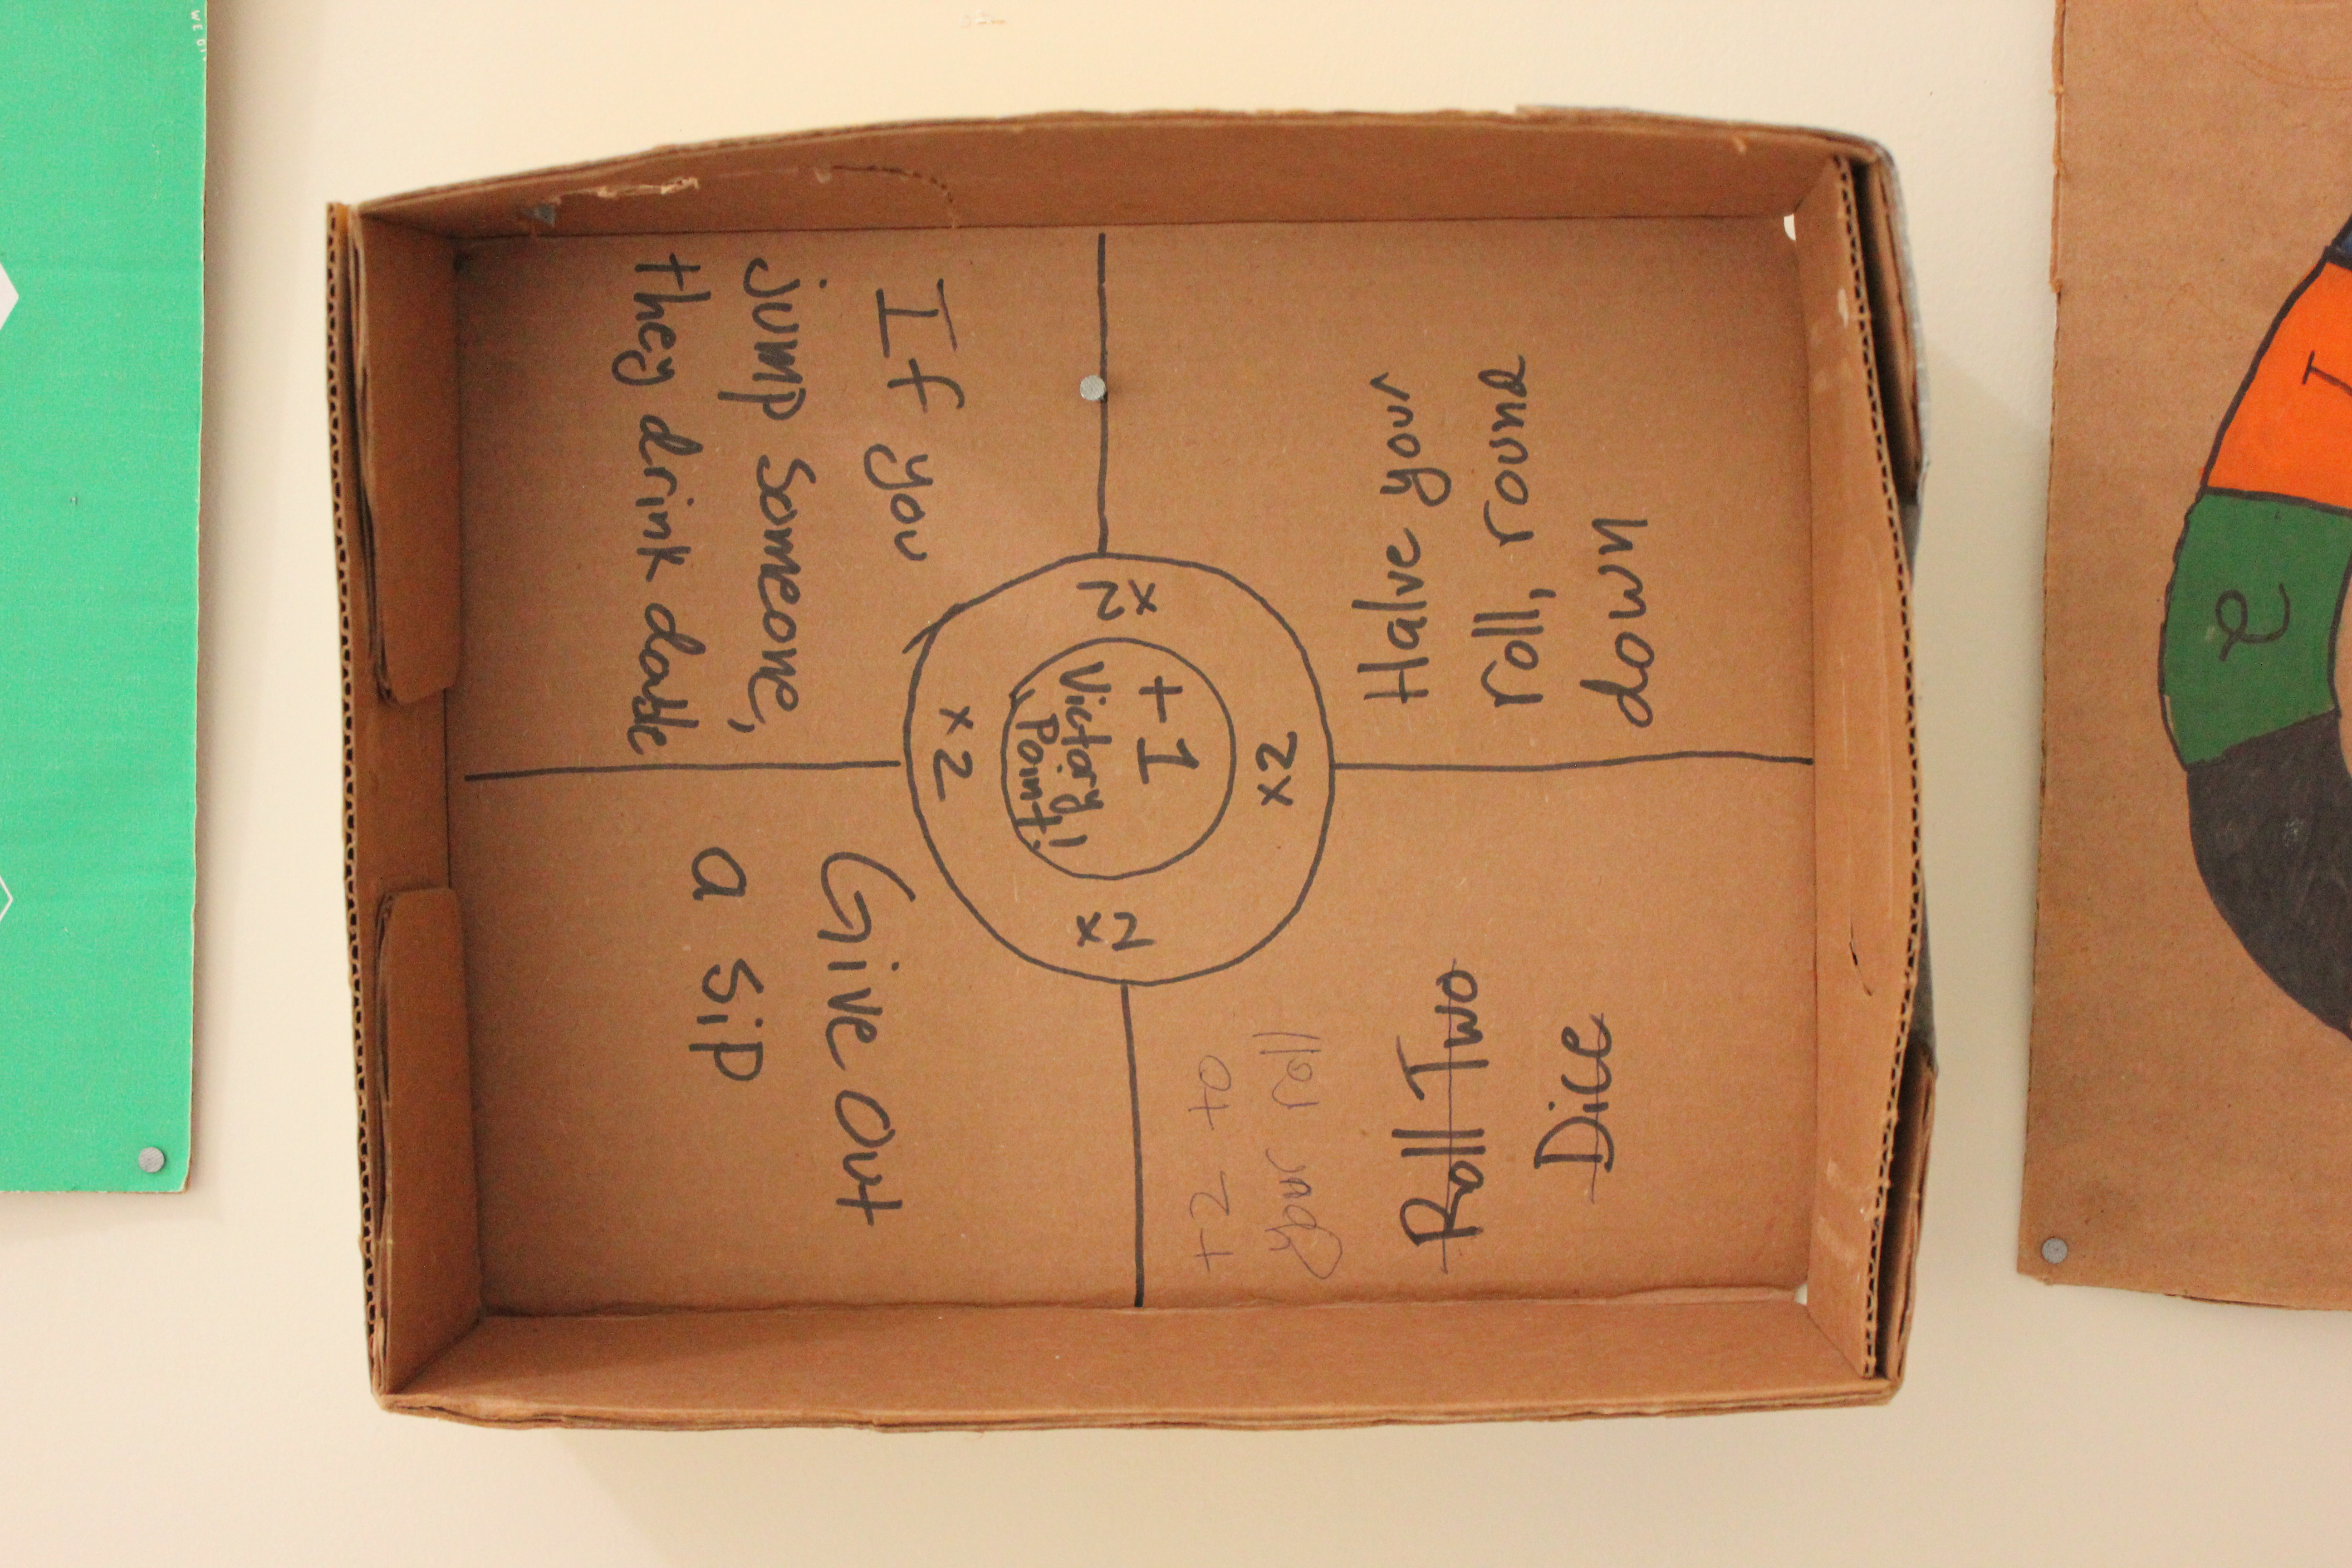 If you
jump someone,
they drink double
Halve your
roll, round
down
x2
x2
x2
x2
+1
Victory
Point!
Give Out
a sip
+2 to
your roll
Roll Two
Dice
1
2